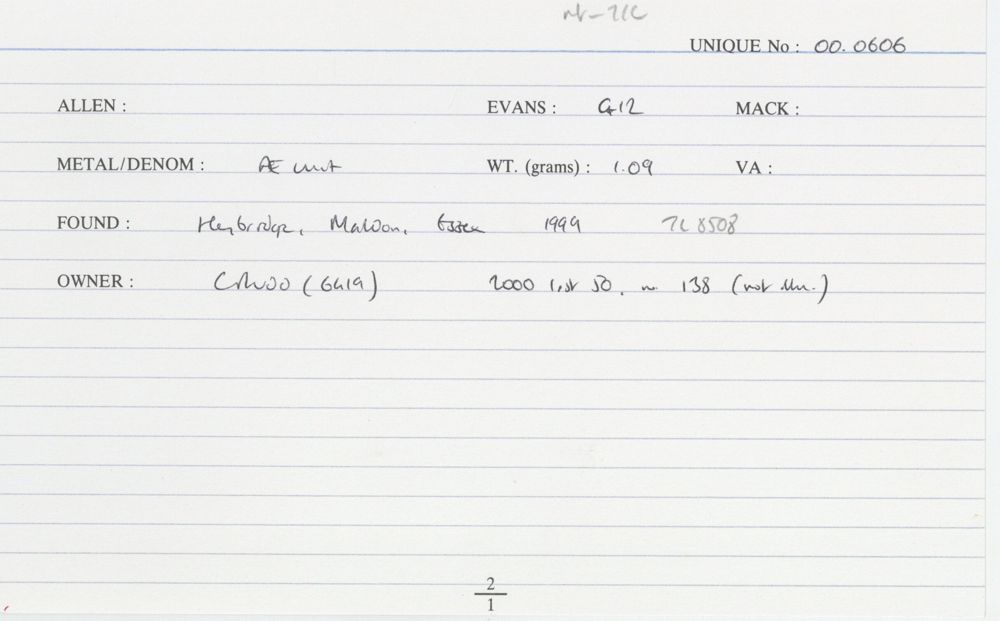 UNIQUE No : 00. 0606
ALLEN : EVANS : G12 MACK :
METAL/DENOM : Æ unit WT. (grams) : 1.09 VA :
FOUND : Heybridge, Maldon, Essex 1999 TL 8508
OWNER : (6419) 2000 list 50, 138 (not illu.)
2
1